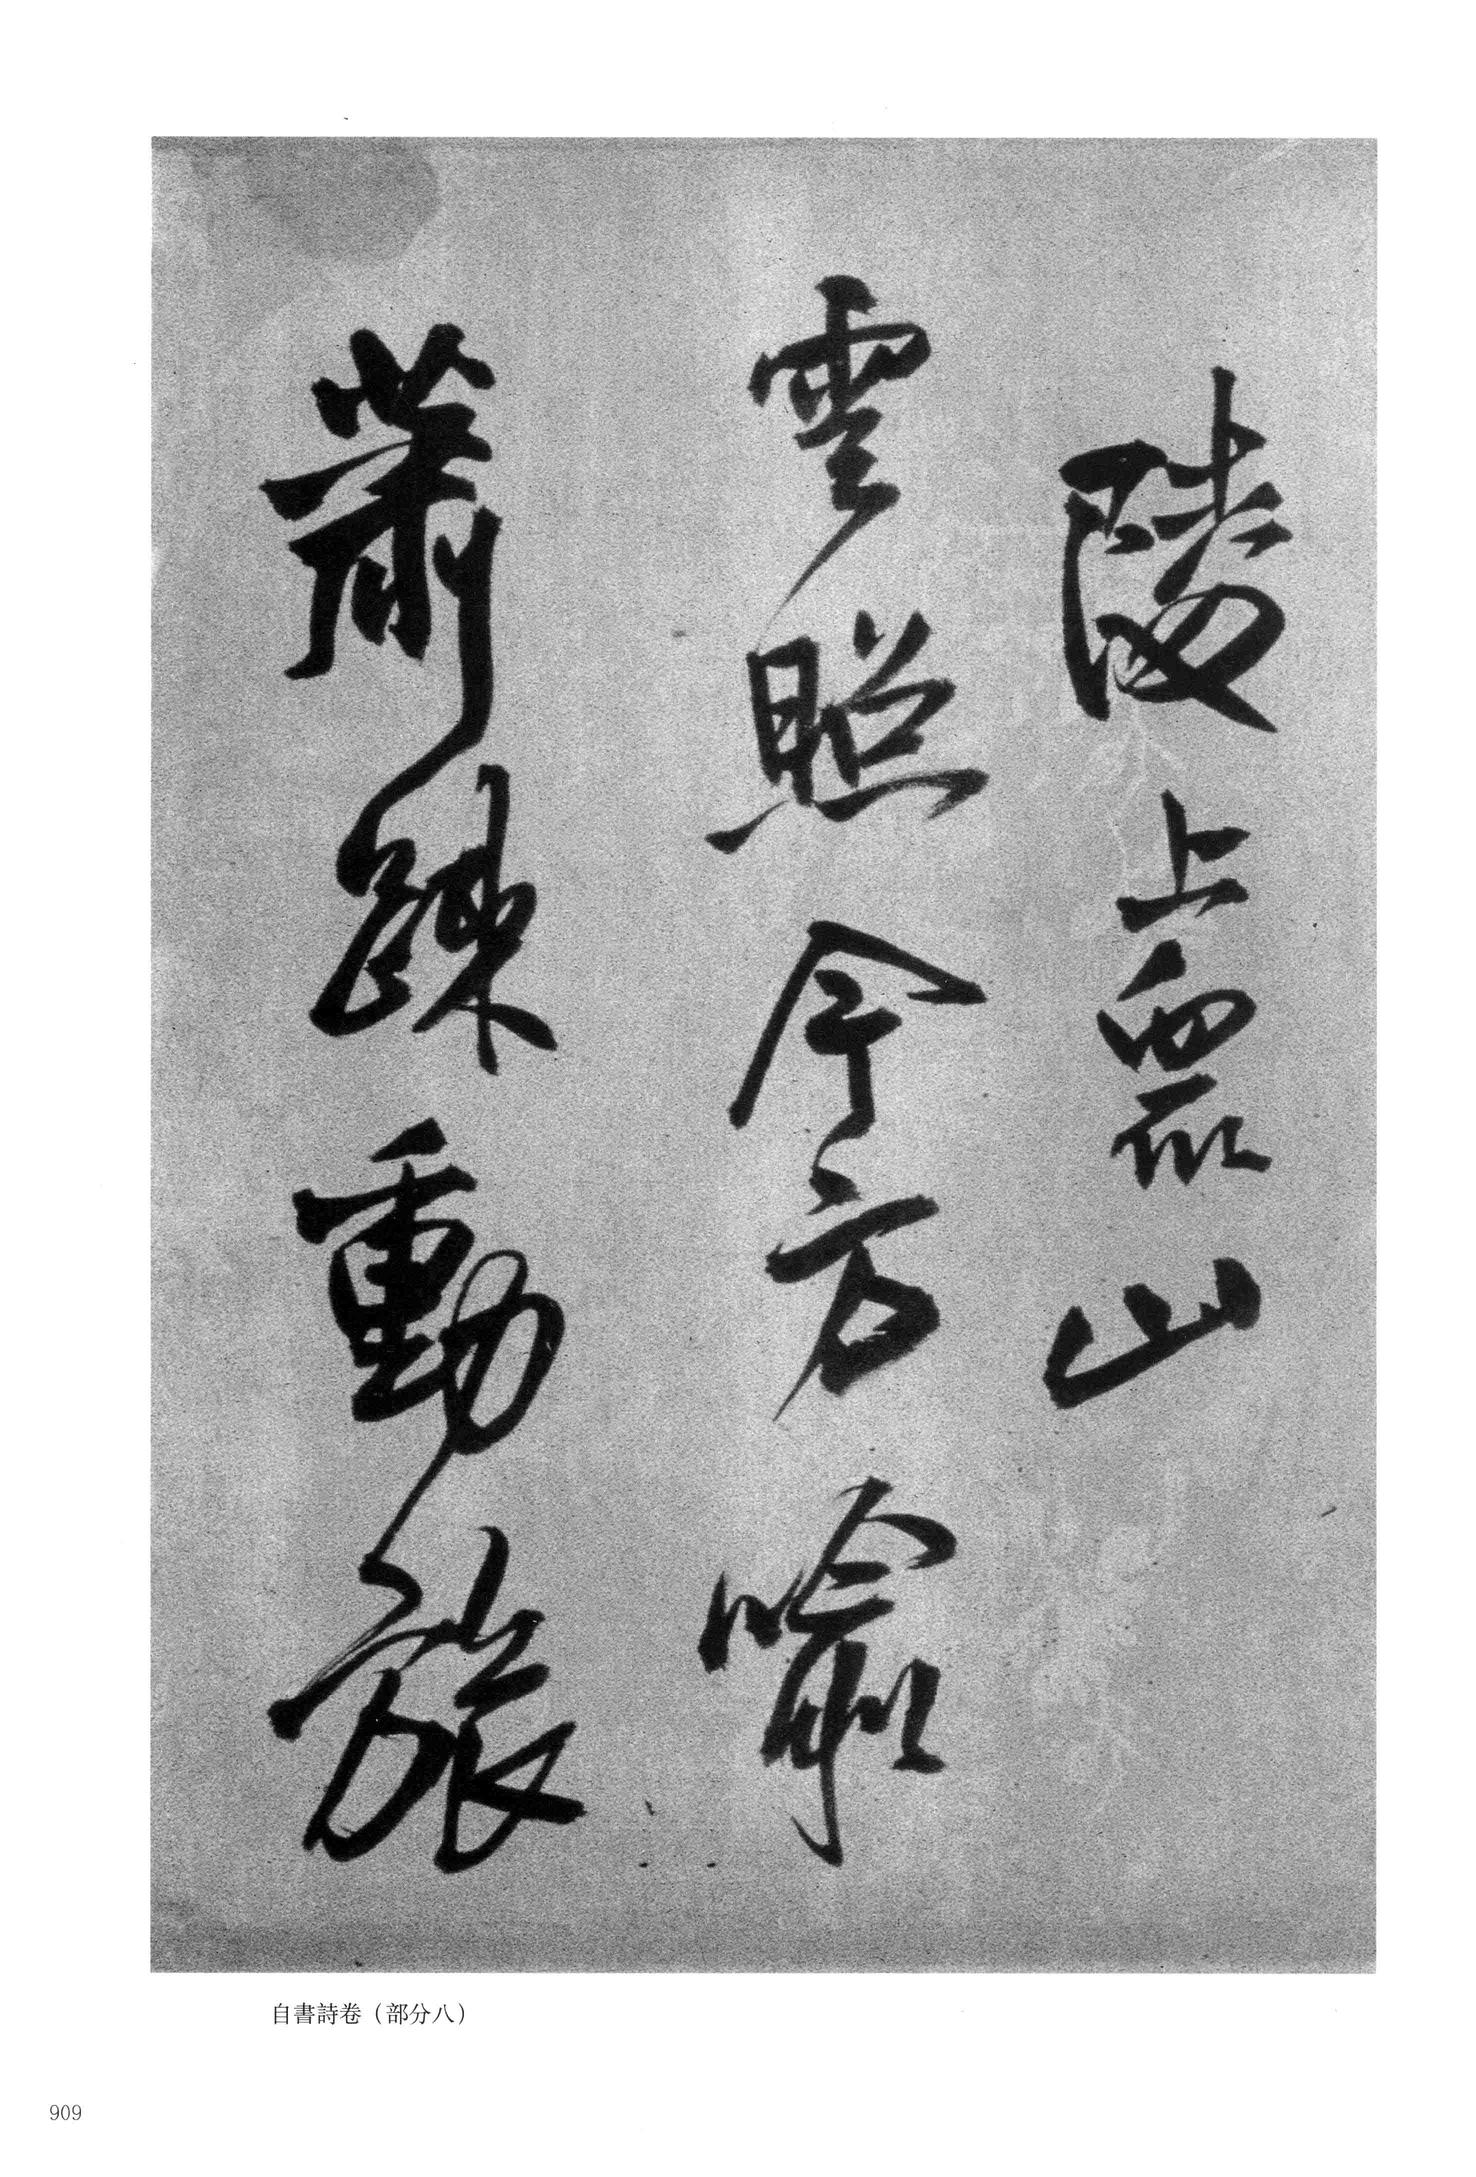 陵上眾山
雲照今方喻
蕭疎動旅
自書詩卷（部分八）
909